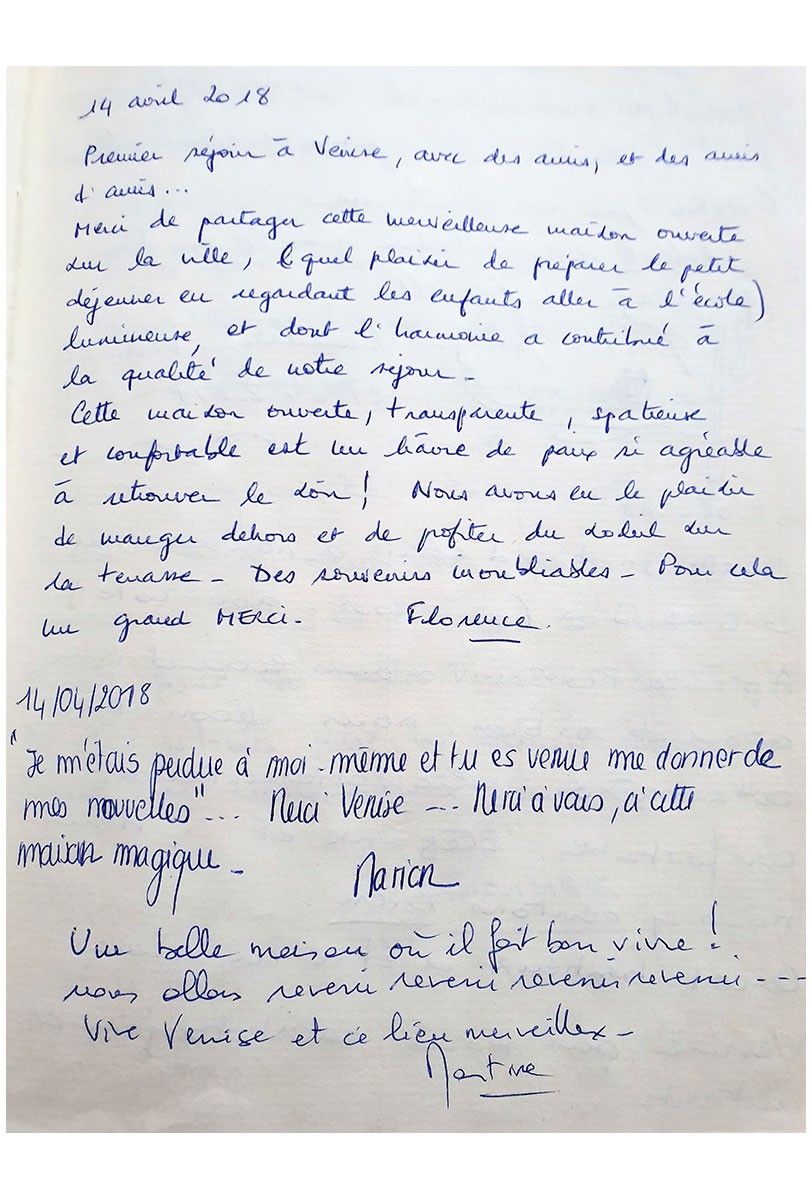 14 avril 2018
Premier séjour à Venise, avec des amis, et des amis
d'amis...
Merci de partager cette merveilleuse maison ouverte
sur la ville, (quel plaisir de préparer le petit
déjeuner en regardant les enfants aller à l'école)
lumineuse, et dont l'harmonie a contribué à
la qualité de notre séjour -
Cette maison ouverte, transparente, spatieuse
et confortable est un hâvre de paix si agréable
à retrouver le soir! Nous avons eu le plaisir
de manger dehors et de profiter du soleil sur
la terrasse - Des souvenirs inoubliables - Pour cela
un grand MERCI - Florence.
14/04/2018
"Je m'étais perdue à moi-même et tu es venue me donner de
mes nouvelles"... Merci Venise --- Merci à vous, à cette
maison magique -
Marion
Une belle maison où il fait bon vivre!
nous allons revenir revenir revenir revenir ---
Vive Venise et ce lieu merveilleux -
Martine